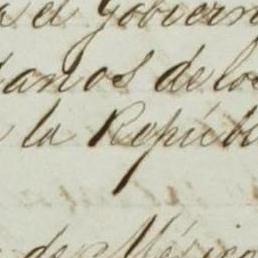 a el gobiern
danos de los
a la Repúbli
de México